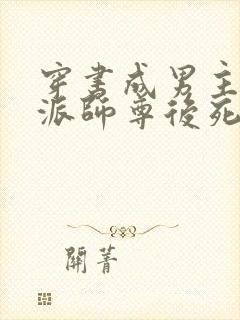 穿書成男主
派師尊後死
關菁